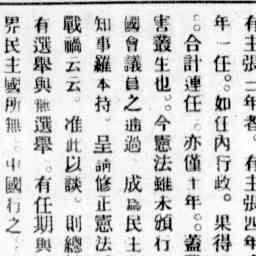 有主張三年者。有主張四年
年一任。如任內行政。果得
。合計連任。亦僅十年。蓋
害叢生也。今憲法雖未頒行
國會議員之通過 成為民主
知事羅本持。呈請修正憲法
戰禍云云。准此以談。則總
有選舉與無選舉。有任期與
界民主國所無 中國行之